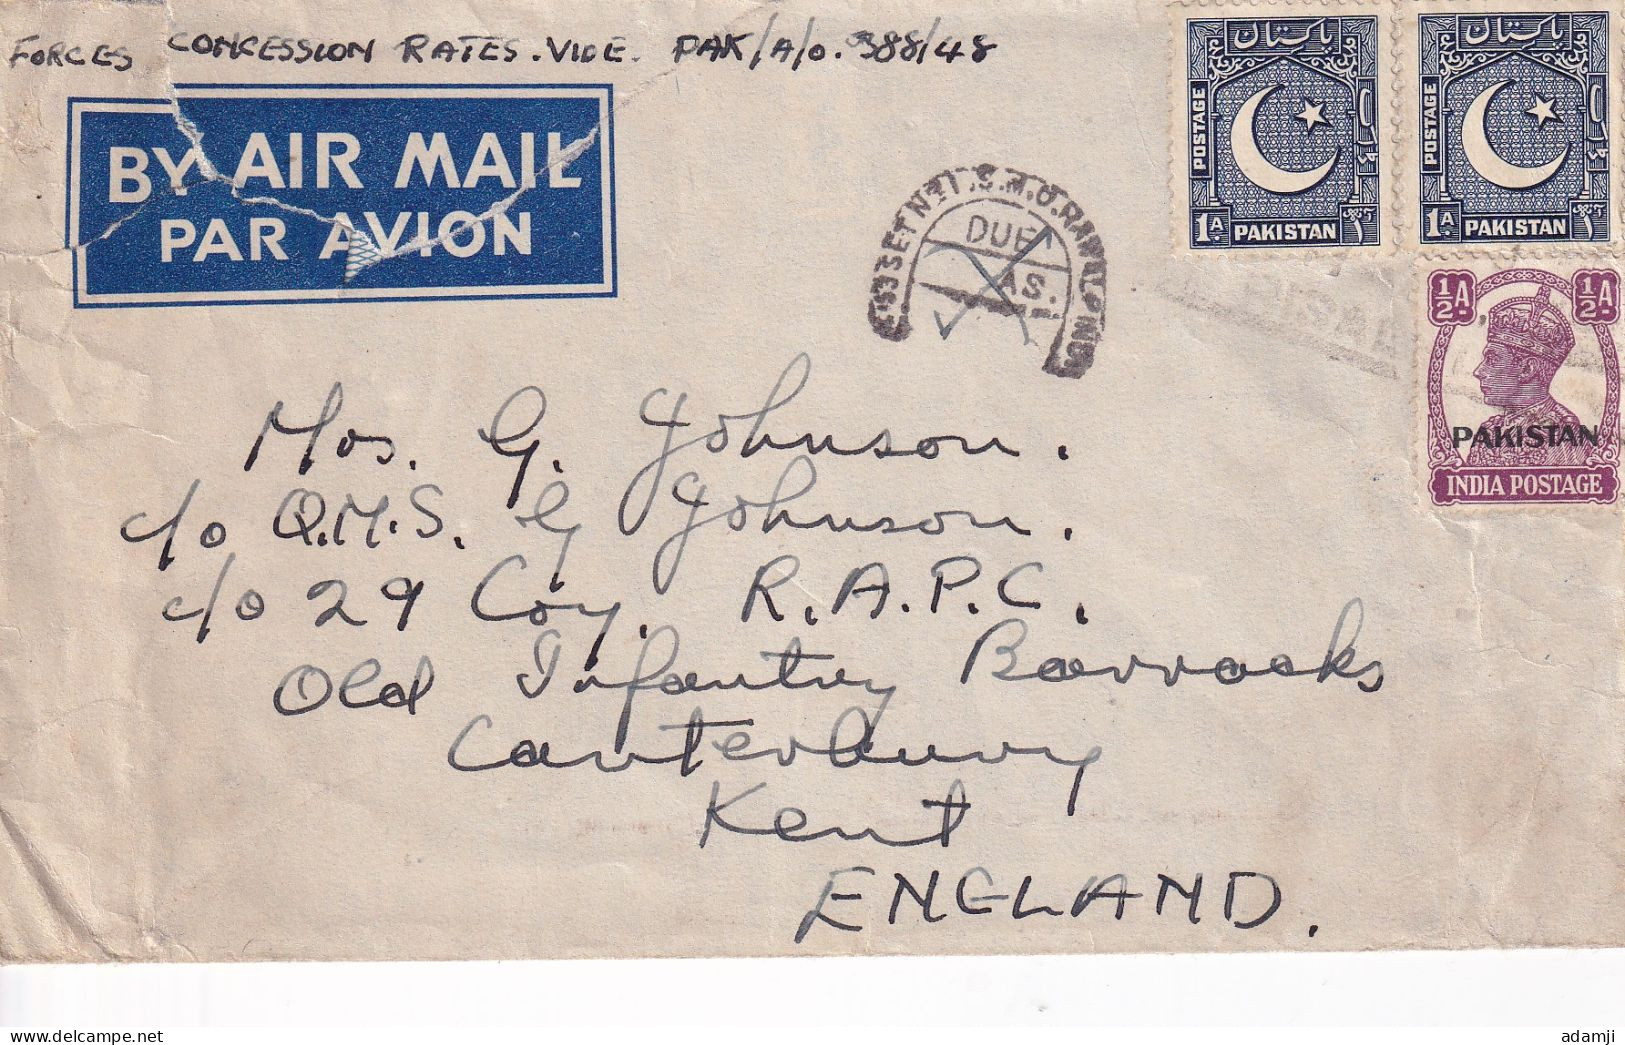 FORCES CONCESSION RATES. VIDE. PAK/A/O. 388/48
BY AIR MAIL
PAR AVION
DUE
AS.
پاکستان
POSTAGE
1A.
PAKISTAN
پاکستان
POSTAGE
1A.
PAKISTAN
½A ½A
PAKISTAN
INDIA POSTAGE
Mrs. G. Johnson.
c/o Q.M.S. G Johnson.
c/o 29 Coy. R.A.P.C.
Old Infantry Barracks
Canterbury
Kent
ENGLAND.
adamji